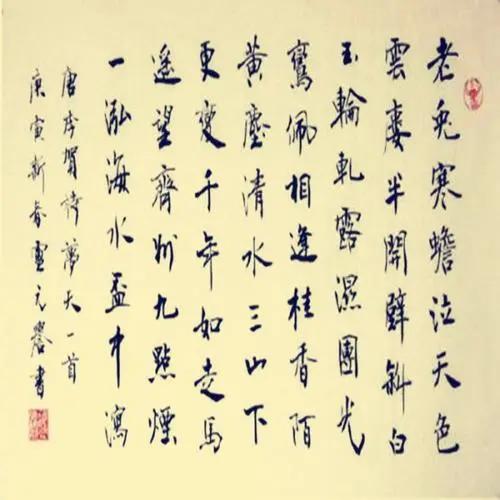 老兔寒蟾泣天色
雲婁半開壁斜白
玉輪軋露濕團光
鸞佩相逢桂香陌
黃塵清水三山下
更變千年如走馬
遙望齊州九點煙
一泓海水盃中瀉
唐李賀詩夢天一首
庚寅新春書